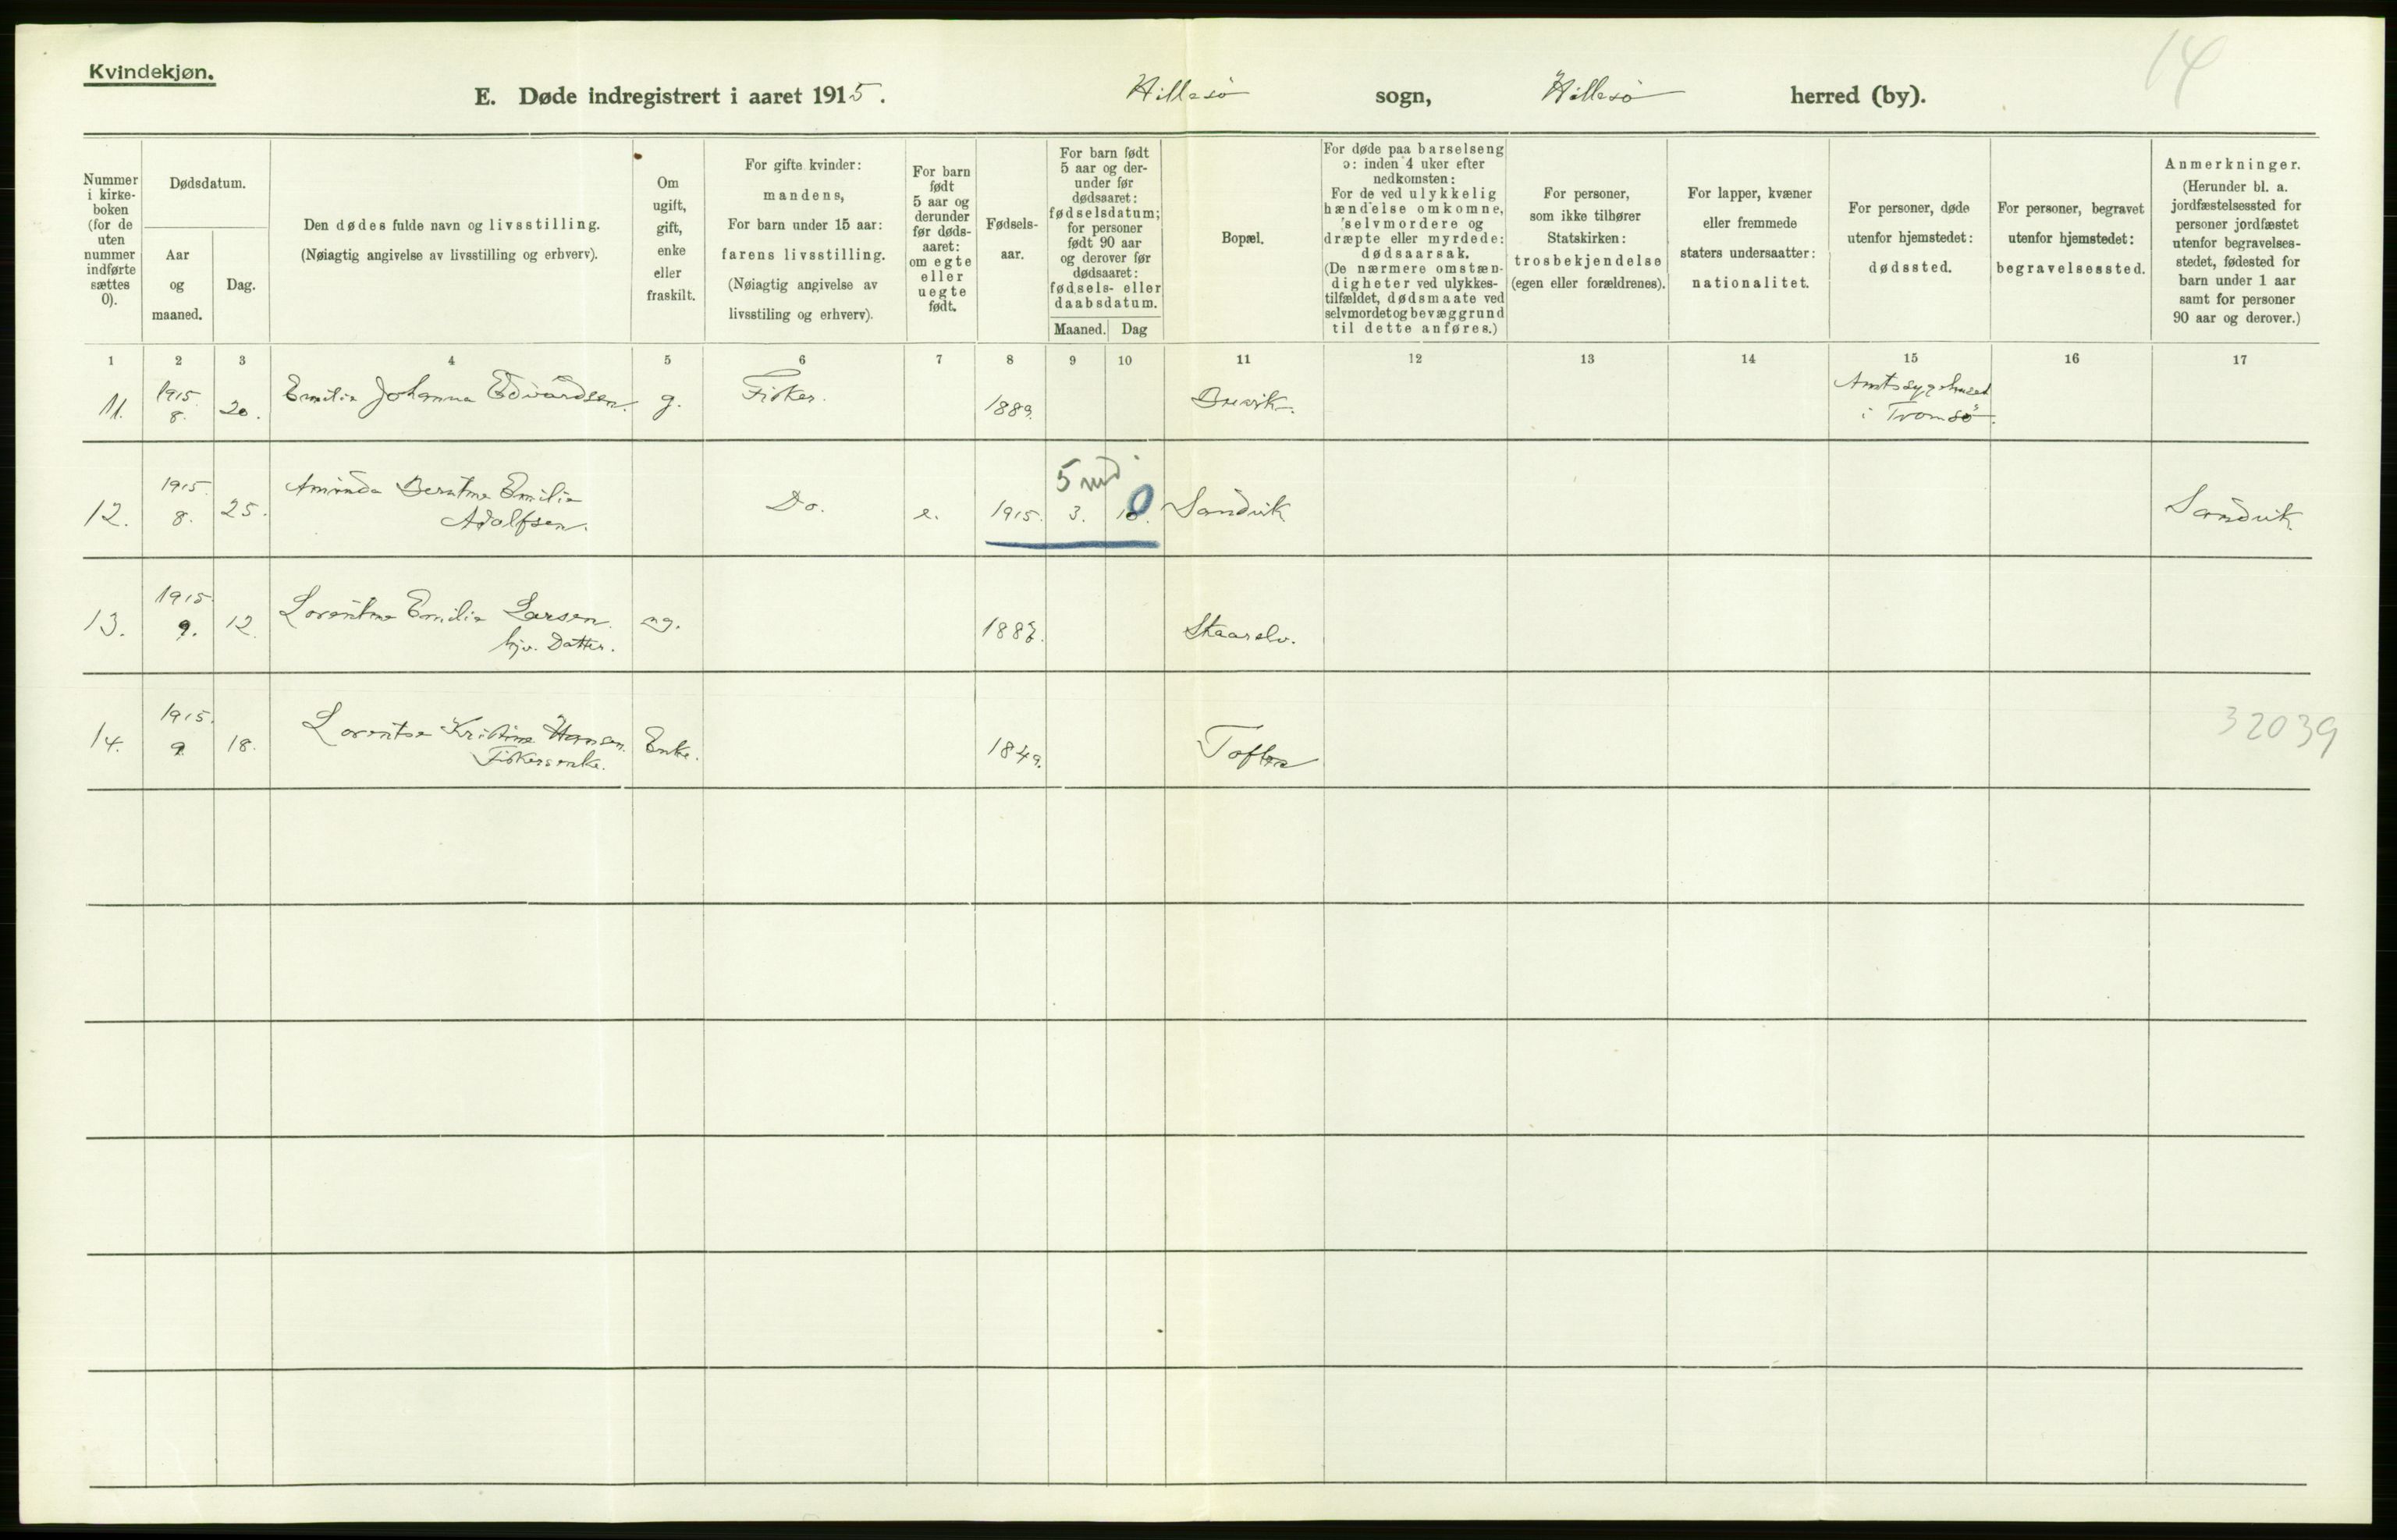 Kvindekjøn.
14
E. Døde indregistrert i aaret 1915. Hillesø sogn, Hillesø herred (by).
Nummer i kirke-boken (for de uten nummer indførte sættes 0).
Dødsdatum.
Aar og maaned.
Dag.
Den dødes fulde navn og livsstilling.
(Nøiagtig angivelse av livsstilling og erhverv).
Om ugift, gift, enke eller fraskilt.
For gifte kvinder: mandens,
For barn under 15 aar: farens livsstilling.
(Nøiagtig angivelse av livsstiling og erhverv).
For barn født 5 aar og derunder før døds-aaret: om egte eller uegte født.
Fødsels-aar.
For barn født 5 aar og der-under før dødsaaret: fødselsdatum; for personer født 90 aar og derover før dødsaaret: fødsels- eller daabsdatum.
Maaned. Dag
Bopæl.
For døde paa barselseng ɔ: inden 4 uker efter nedkomsten:
For de ved ulykkelig hændelse omkomne, selvmordere og dræpte eller myrdede: dødsaarsak.
(De nærmere omstæn-digheter ved ulykkes-tilfældet, dødsmaate ved selvmordet og bevæggrund til dette anføres.)
For personer, som ikke tilhører Statskirken: trosbekjendelse (egen eller forældrenes).
For lapper, kvæner eller fremmede staters undersaatter: nationalitet.
For personer, døde utenfor hjemstedet: dødssted.
For personer, begravet utenfor hjemstedet: begravelsessted.
Anmerkninger.
(Herunder bl. a. jordfæstelsessted for personer jordfæstet utenfor begravelses-stedet, fødested for barn under 1 aar samt for personer 90 aar og derover.)
1 2 3 4 5 6 7 8 9 10 11 12 13 14 15 16 17
11. 1915. 8. 20. Emilie Johanna Edvardsen. g. Fisker. 1889. Amtssygehuset
i Tromsø.
12. 1915. 8. 25. Aminda Beratine Emilie
Adolfsen. Do. e. 1915. 3. 10. Sandvik Sandvik
5 md
0
13. 1915 9. 12. Lorentine Emilie Larsen.
hjv. Datter. ug. Skaarelv.
14. 1915. 9. 18. Lorentse Kristine Hansen.
Fiskersenke. Enke. 1849. Toften
32039